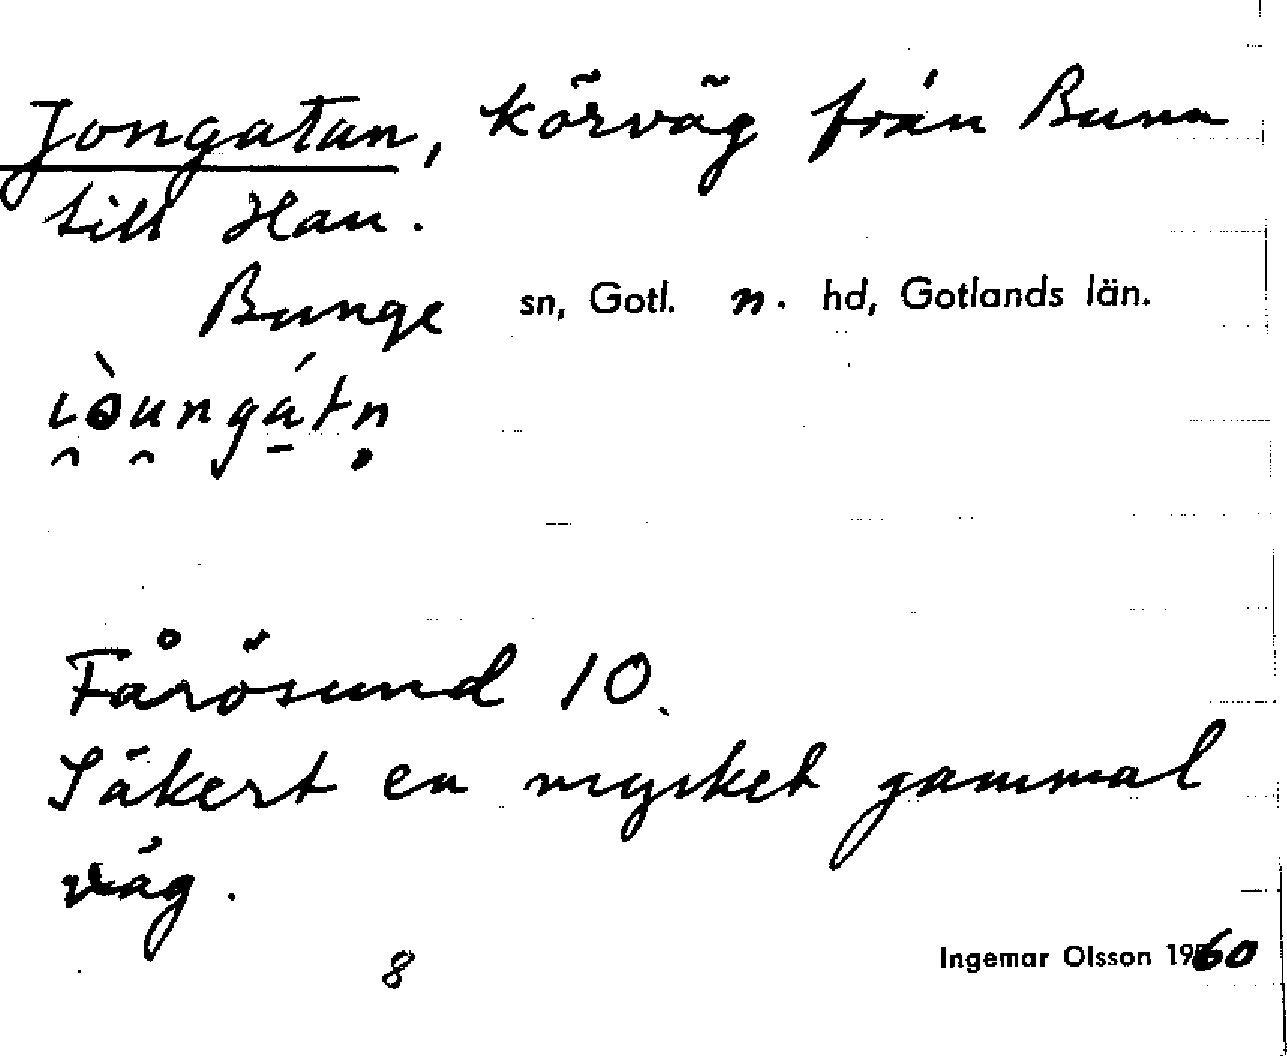 Jongatan, körväg från Bunn
till Hau.
Bunge sn, Gotl. n. hd, Gotlands län.
i̯òu̯ngá̱tn̥
Fårösund 10.
Säkert en mycket gammal
väg.
8
Ingemar Olsson 1960